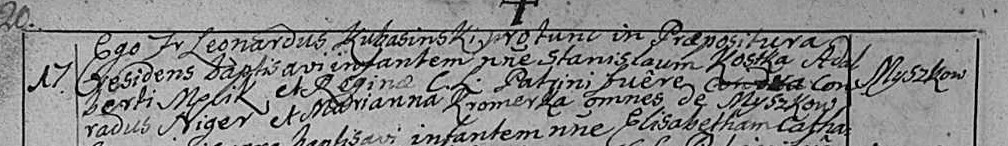 20.
Ego Fr Leonardus Kubasinski, protunc in Præpositura
17. Residens baptisavi infantem nne Stanislaum Kostka Adal Myszkow
berti Mzik, et Reginæ C. L. Patrini fuêre Con
radus Niger et Marianna Kromerka omnes de Myszkow
baptisavi infantem nne Elisabetham Catha: